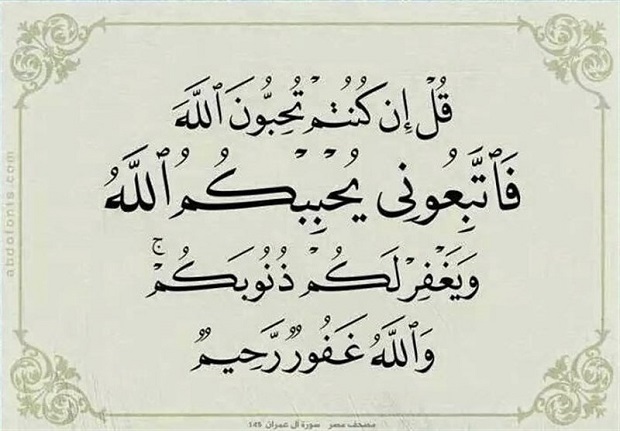 قُلْ إِن كُنتُمْ تُحِبُّونَ ٱللَّهَ
فَٱتَّبِعُونِى يُحْبِبْكُمُ ٱللَّهُ
وَيَغْفِرْ لَكُمْ ذُنُوبَكُمْ ۚ
وَٱللَّهُ غَفُورٌ رَّحِيمٌ
مصحف مصر سورة آل عمران 145
abdofonts.com